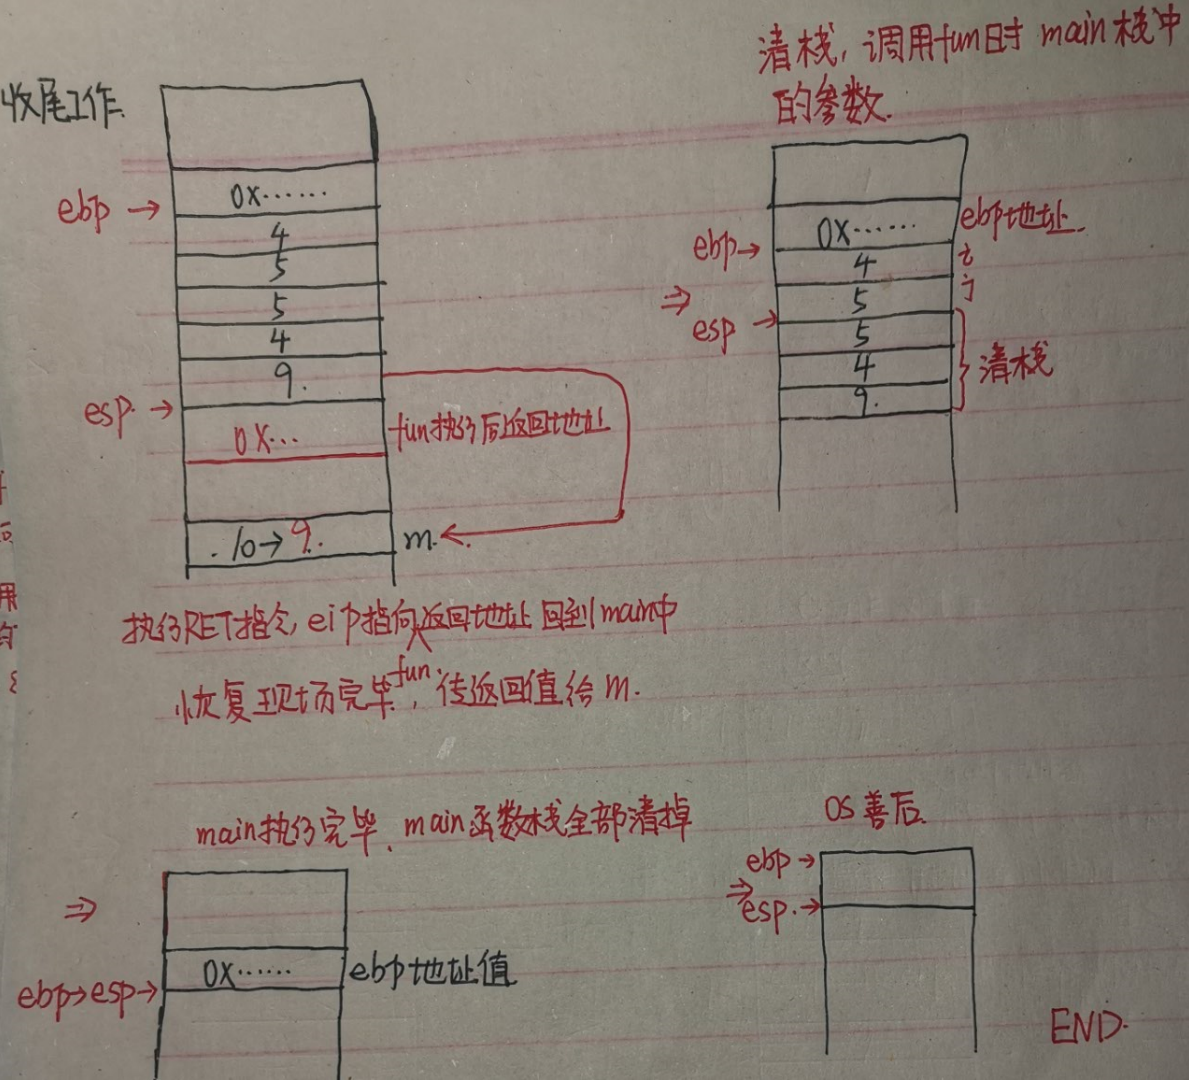 收尾工作.
ebp →
0x……
4
5
5
4
9.
esp. →
0x…
fun执行后返回地址
.10→9.
m.
清栈, 调用fun时 main栈中
的参数.
0x……
ebp地址.
ebp→
4
i
5
j
⇒
esp →
5
4
9.
清栈
执行RET指令, eip指向返回地址 回到main中
fun
恢复现场完毕, 传返回值给 m.
main执行完毕, main函数栈全部清掉
⇒
0x……
ebp地址值
ebp→esp→
OS善后.
ebp→
⇒
esp.→
END.
用